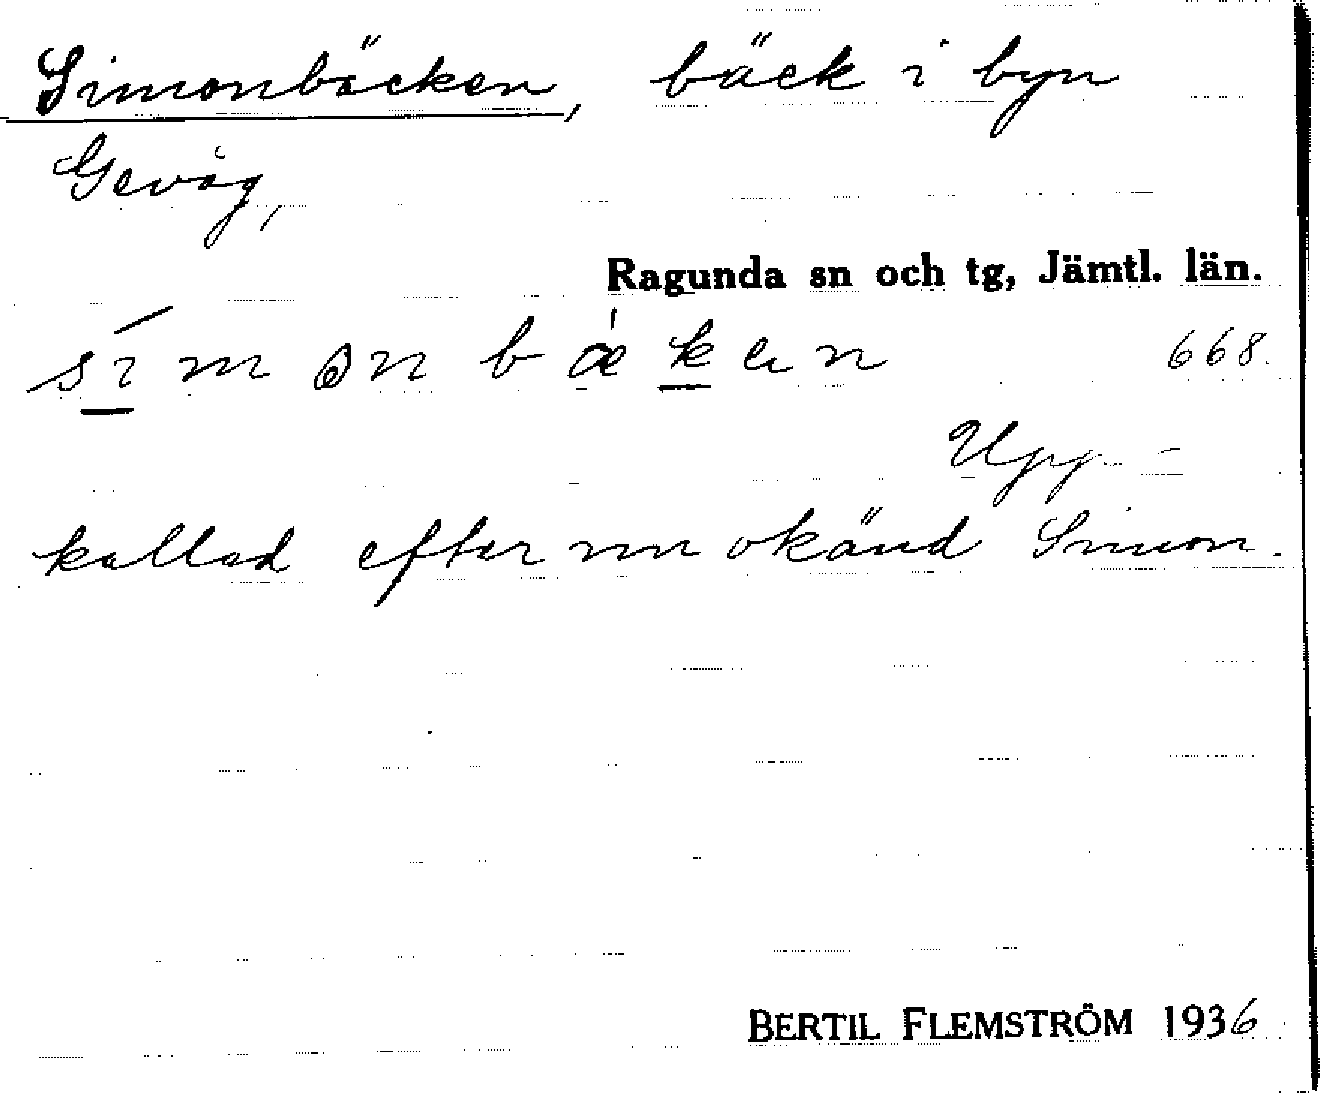 Simonbäcken, bäck i byn
Gevåg,
Ragunda sn och tg, Jämtl. län.
símɷnbæ̀ken 668.
Upp-
kallad efter nu okänd Simon.
BERTIL FLEMSTRÖM 1936